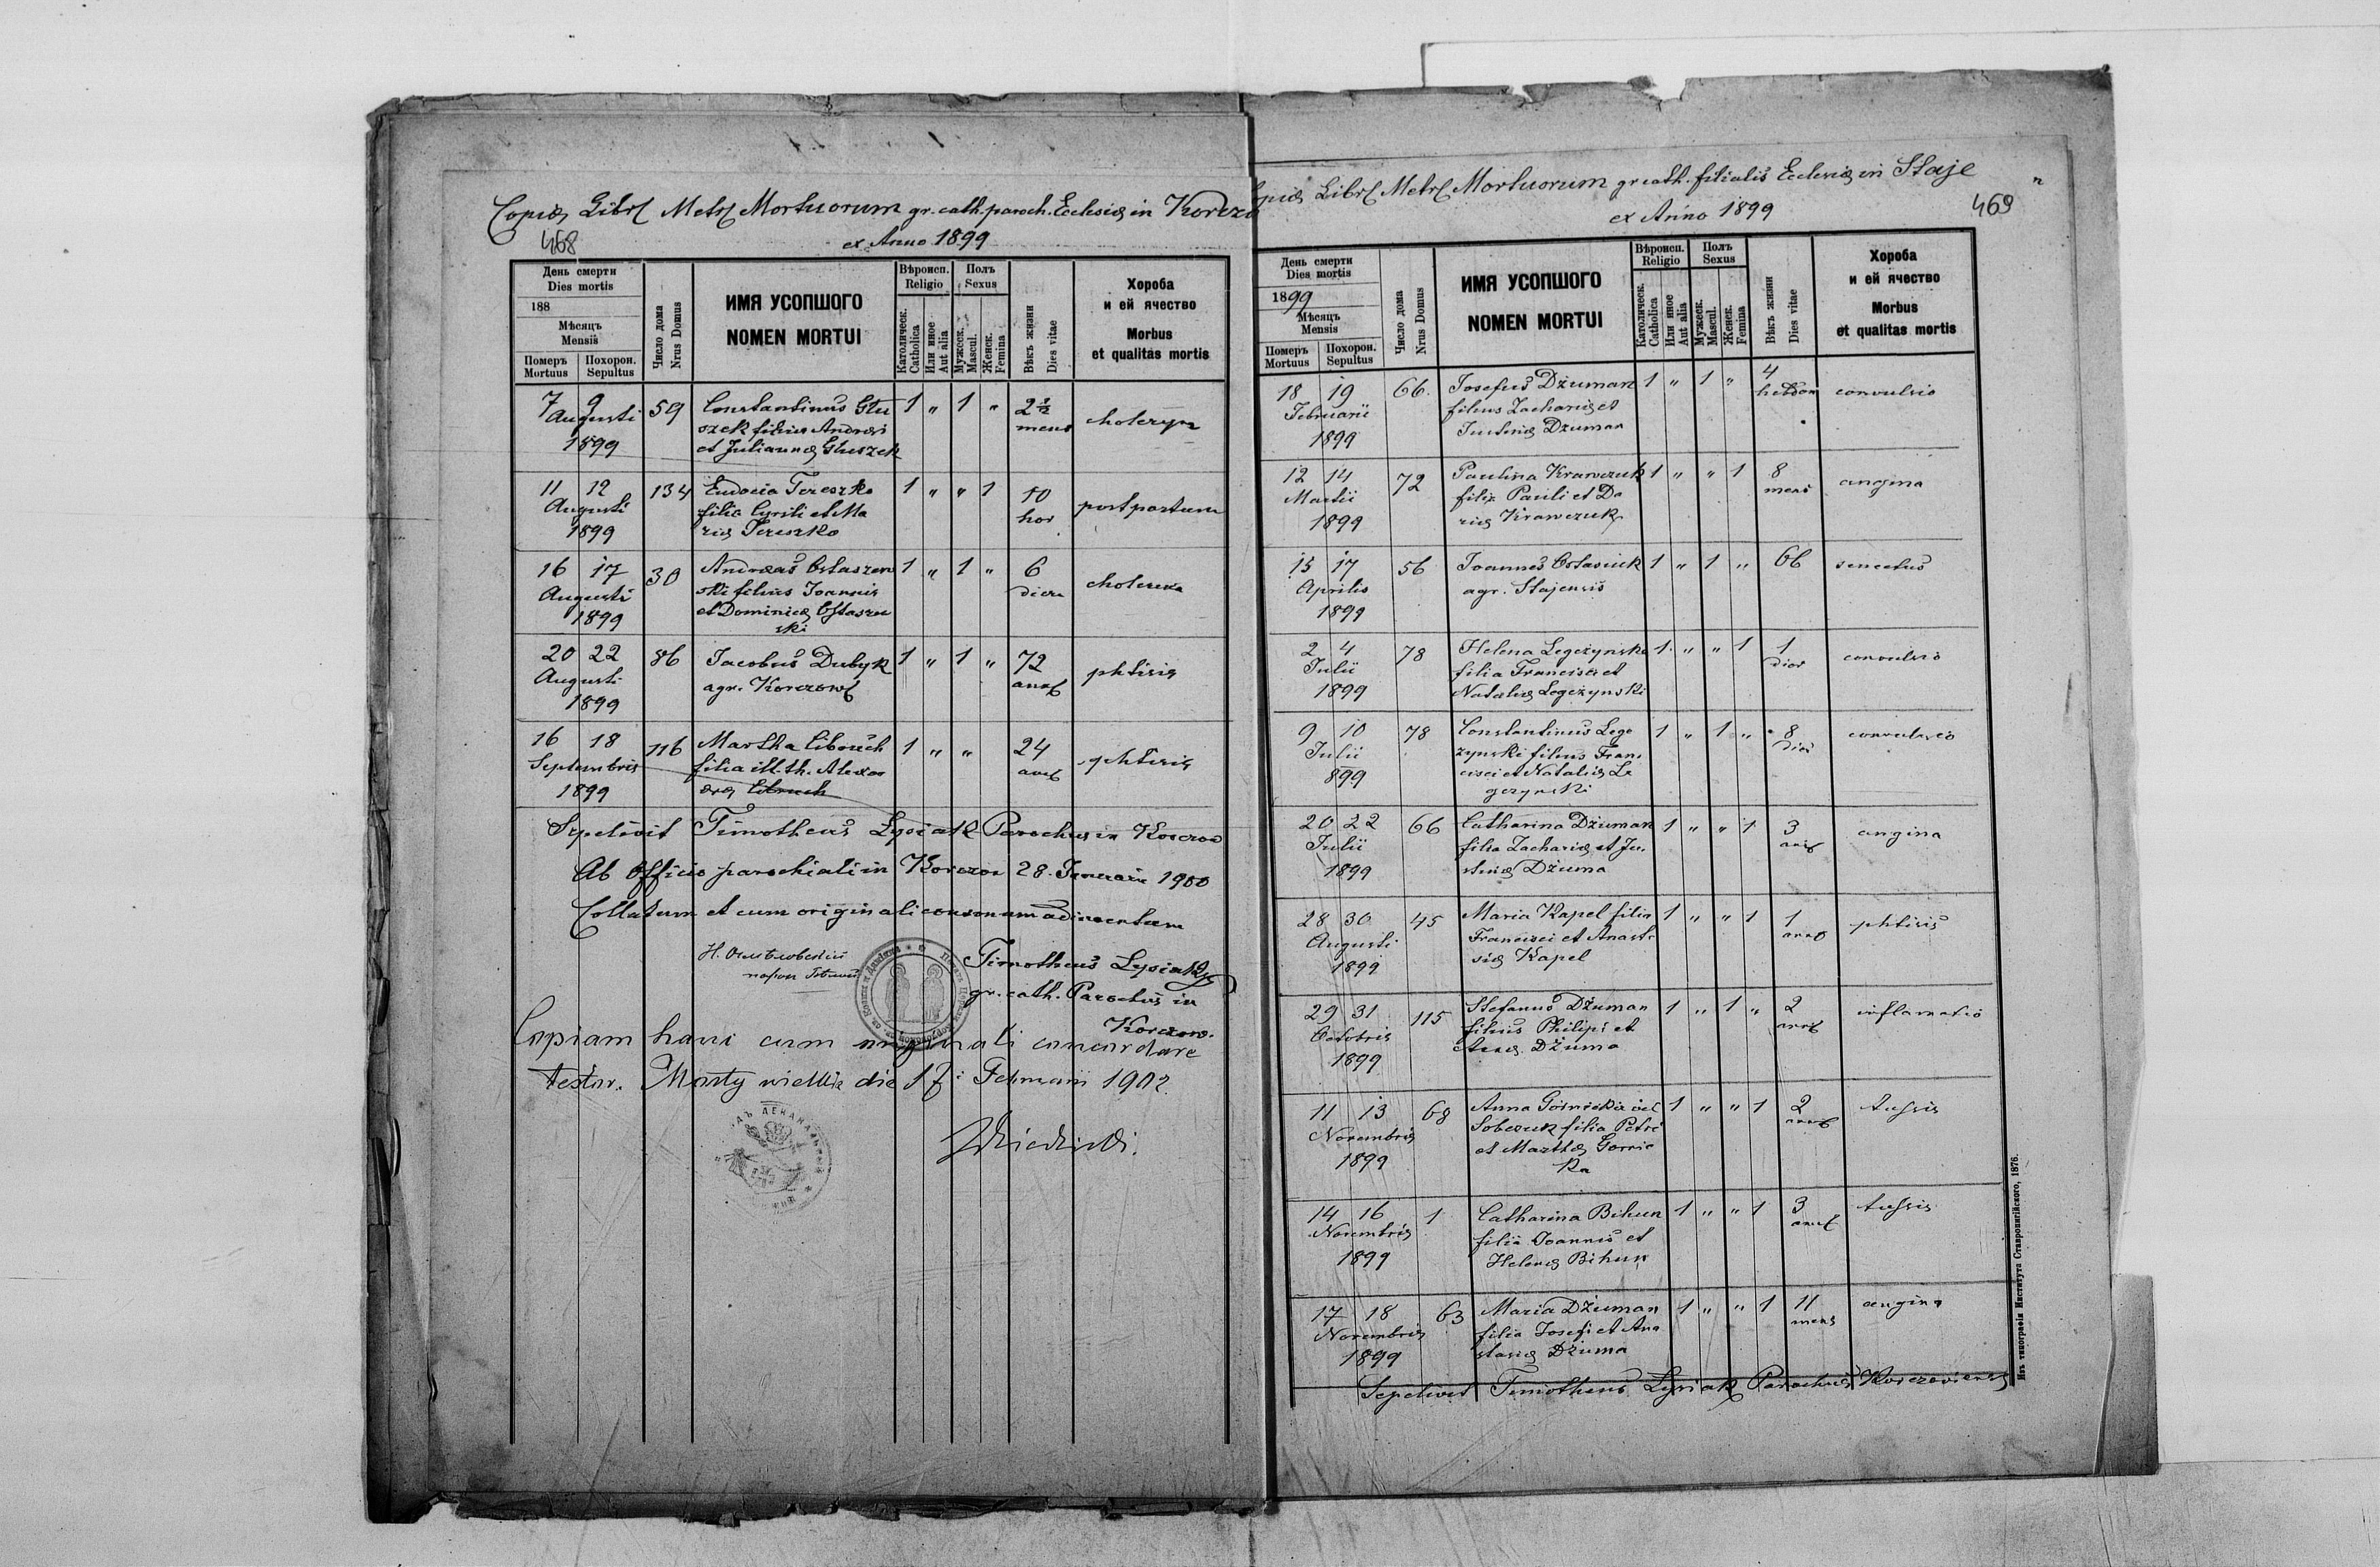 Copia Libri Metr. Mortuorum gr. cath. paroch. Ecclesiæ in Korczo
468
ex Anno 1899
День смерти
Dies mortis
188
Мѣсяцъ
Mensis
Померъ
Mortuus
Похорон.
Sepultus
Число дома
Nrus Domus
ИМЯ УСОПШОГО
NOMEN MORTUI
Вѣроисп.
Religio
Католическ.
Catholica
Или иное
Aut alia
Полъ
Sexus
Мужеск.
Mascul.
Женск.
Femina
Вѣкъ жизни
Dies vitae
Хороба
и ей ячество
Morbus
et qualitas mortis
7 9 59 Constantinus Glu 1 " 1 " 2 1/2
Augusti szek filius Andreæ mens choleryn
1899 et Juliannæ Gluszek
11 12 134 Eudocia Tereszko 1 " " 1 10
Augusti filia Cyrili et Ma hor post partum
1899 riæ Tereszko
16 17 30 Andreas Ostaszew 1 " 1 " 6
Augusti ski filius Joannis dieru
1899 et Dominicæ Ostaszew
ski
20 22 86 Jacobus Dubyk 1 " 1 " 72 phtisis
Augusti agr. Korczow
1899
16 18 116 Martha 1 " " 24 phtisis
Septembris filia ill. th.
1899
Sepelivit Timotheus Lysiak Parochus in Korczow
Ab Officio parochiali in Korczow 28. Januarii 1900
Collatum et cum originali consonum adinventum
Timotheus Lysiak
gr. cath. Parochus in
Korczow.
Copiam hanc cum originali concordare
testor. Mosty wielkie die 17. Februarii 1902
Copia Libri Metr. Mortuorum gr. cath. filialis Ecclesiæ in Staje
469
ex Anno 1899
День смерти
Dies mortis
1899
Мѣсяцъ
Mensis
Померъ
Mortuus
Похорон.
Sepultus
Число дома
Nrus Domus
ИМЯ УСОПШОГО
NOMEN MORTUI
Вѣроисп.
Religio
Католическ.
Catholica
Или иное
Aut alia
Полъ
Sexus
Мужеск.
Mascul.
Женск.
Femina
Вѣкъ жизни
Dies vitae
Хороба
и ей ячество
Morbus
et qualitas mortis
18 19 66. Josefus Dżuman 1 " 1 " 4 convulsio
Februarii filius Zachariæ et hebdom
1899 Justinæ Dżuman
12 14 72 Paulina Krawczuk 1 " " 1 8 angina
Martii filia Pauli et Da mens
1899 riæ Krawczuk
15 17 56 Joannes Ostasiuk 1 " 1 " 66 senectus
Aprilis agr. Stajensis
1899
2 4 78 Helena Legezynska 1 " " 1 1 convulsio
Julii filia Francisci et dies
1899 Nataliæ Legezynski
9 10 78 Constantinus Lege 1 " 1 " 8 convulsio
Julii zynski filius Fran dies
899 cisci et Nataliæ Le
gezynski
20 22 66 Catharina Dżuman 1 " " 1 3 angina
Julii filia Zachariæ et Ju
1899 stinæ Dżuma
28 30 45 Maria Kapel filia 1 " " 1 1 phtisis
Augusti Francisci et Anasta
1899 siæ Kapel
29 31 115 Stefanus Dżuman 1 " 1 " 2 inflamatio
Octobris filius Philipi et
1899 Annæ Dżuma
11 13 68 Anna Gornicka vel 1 " " 1 2 tussis
Novembris Sobczuk filia Petri
1899 et Marthæ Gornic
ka
14 16 1 Catharina Bihun 1 " " 1 3 tussis
Novembris filia Joannis et
1899 Helenæ Bihun
17 18 63 Maria Dżuman 1 " " 1 11 angina
Novembris filia Josefi et Ana mens
1899 stasiæ Dżuma
Sepelivit Timotheus Lysiak Parochus Korczoviensis
Изъ типографіи Института Ставропигійского, 1876.